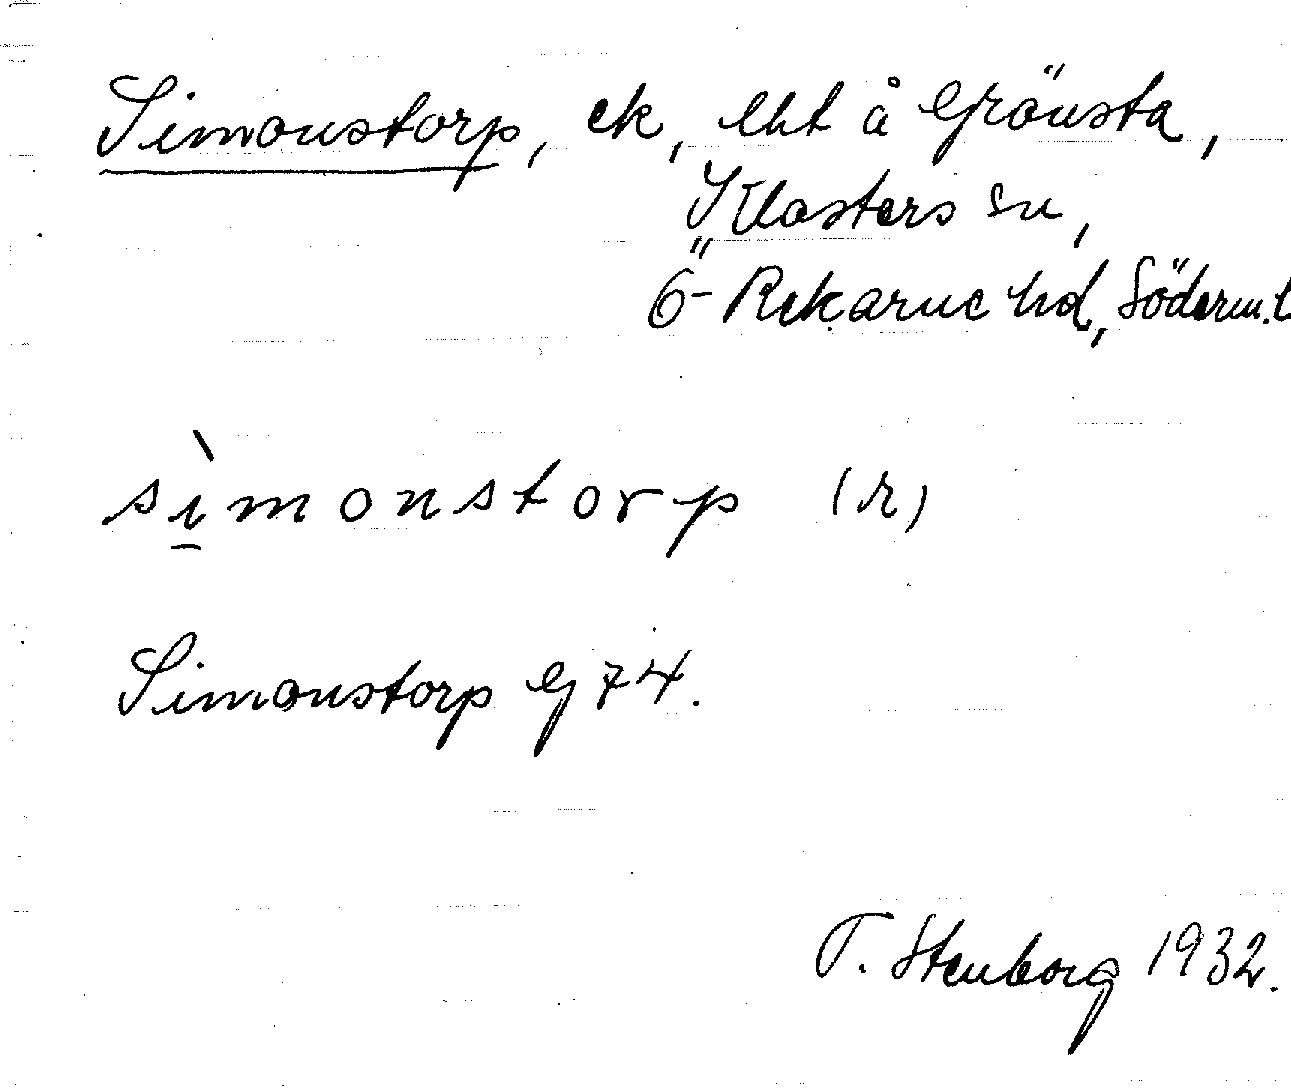 Simonstorp, ek, lht å Grönsta,
Klosters sn,
Ö-Rekarne hd, Söderm.l
sìmonstorp (r)
Simonstorp G 74.
T. Stenborg 1932.